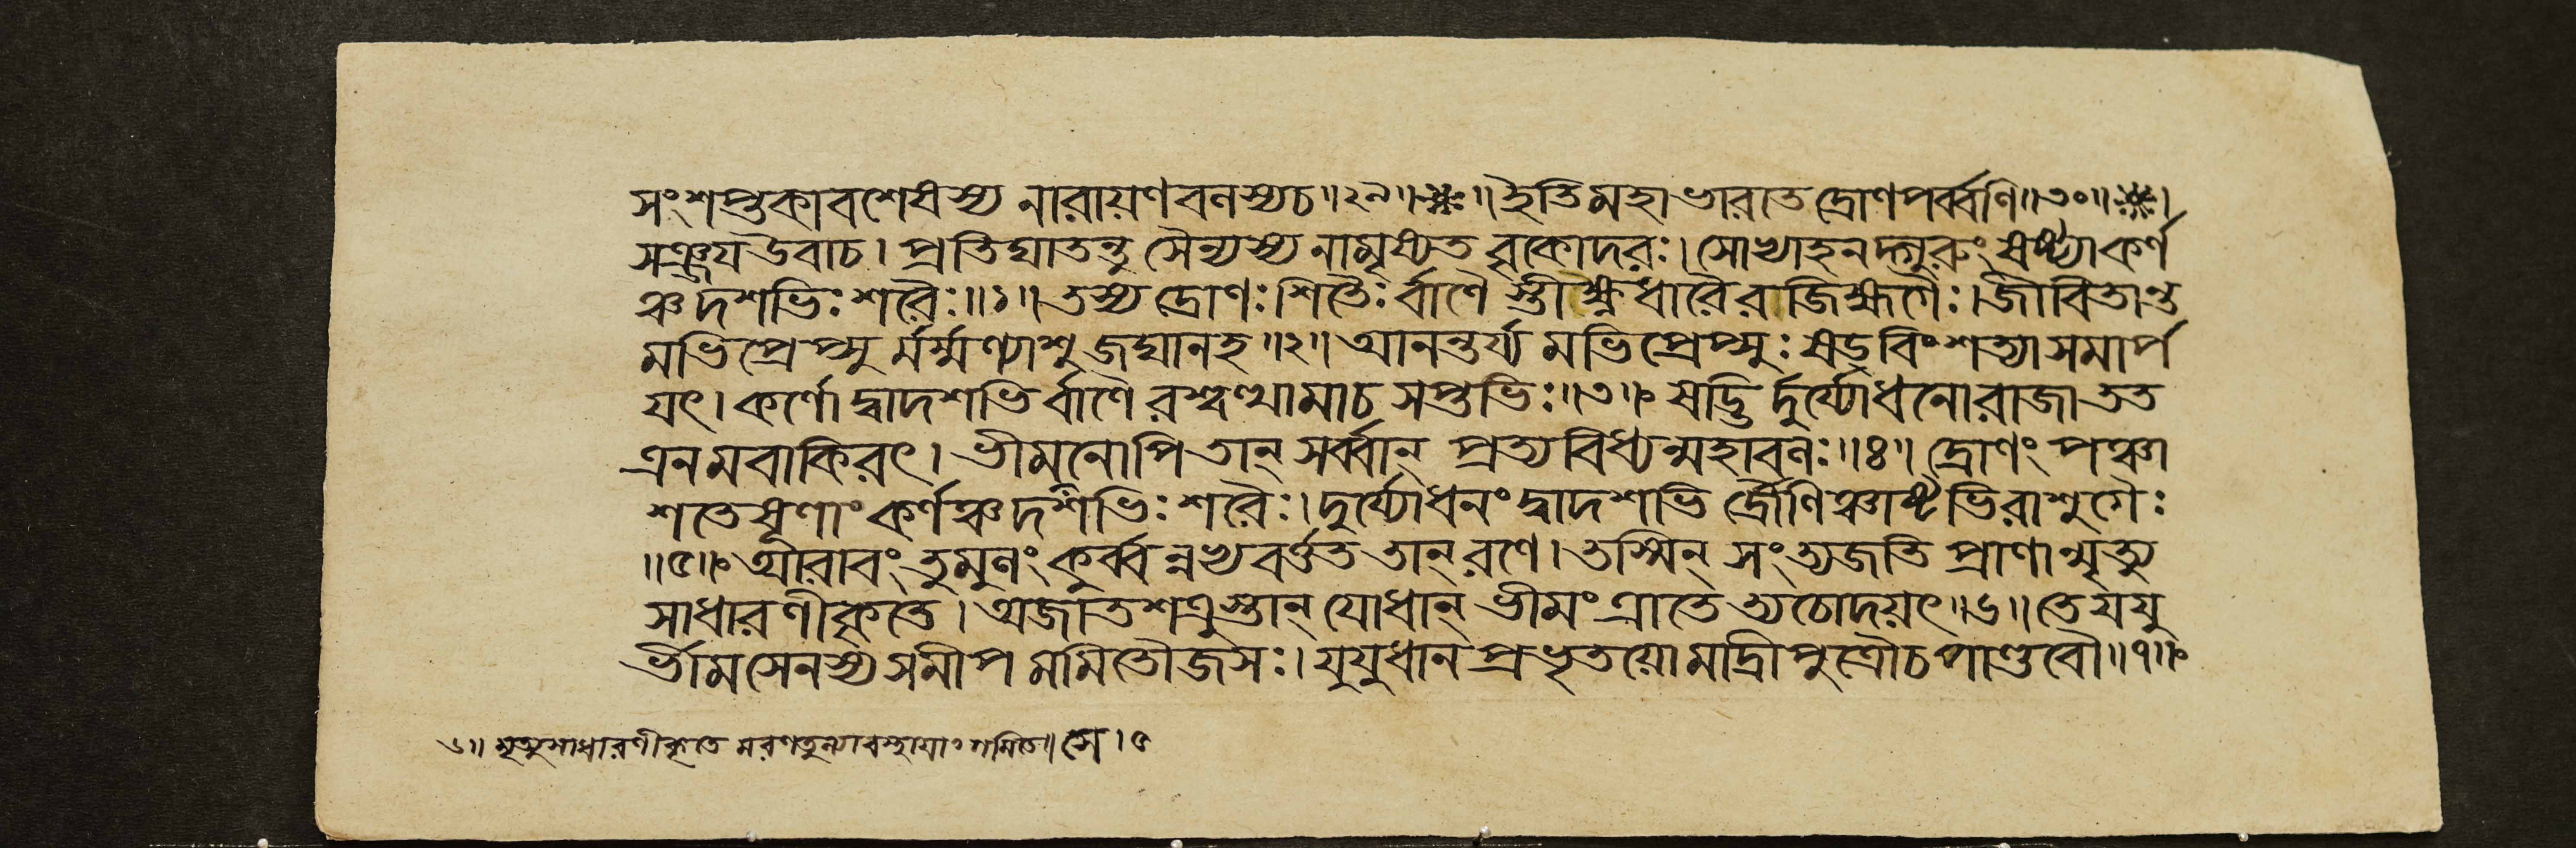 সংশপ্তকাবশেষস্য নারায়ণবলস্যচ॥২৯॥ ॥ইতিমহাভারতেদ্রোণপর্ব্বণি॥৩০॥
সঞ্জয়উবাচ। প্রতিঘাতন্তু সৈন্যস্য নামৃষ্যত বৃকোদরঃ। সোভ্যাহনদ্গুরুং ষষ্ট্যাকর্ণ
ঞ্চদশভিঃ শরৈঃ॥১॥ তস্য দ্রোণঃ শিতৈঃ র্বাণৈ স্তীক্ষ্ণধারৈরজিহ্মগৈঃ। জীবিতান্ত
মভিপ্রেপ্সু র্মর্ম্মণ্যাশু জঘানহ॥২॥ আনন্তর্য্য মভিপ্রেপ্সুঃ ষড়্বিংশত্যা সমার্প
য়ৎ। কর্ণো দ্বাদশভি র্বাণৈ রশ্বত্থামাচ সপ্তভিঃ॥৩॥ ষড্ভি র্দুর্য্যোধনোরাজা তত
এনমবাকিরৎ। ভীমসেনোপি তান্ সর্ব্বান্ প্রত্যবিধ্যন্মহাবলঃ॥৪॥ দ্রোণং পঞ্চা
শতেষূণাং কর্ণঞ্চদশভিঃ শরৈঃ। দুর্য্যোধনং দ্বাদশভি র্দ্রৌণিঞ্চাষ্টভিরাশুগৈঃ
॥৫॥ আরাবং তুমুলং কুর্ব্বন্নভ্যবর্ত্তত তান্ রণে। তস্মিন্ সংত্যজতি প্রাণান্মৃত্যু
সাধারণীকৃতে। অজাতশত্রুস্তান্ যোধান্ ভীমং ত্রাতে ত্যচোদয়ৎ॥৬॥ তে যযু
র্ভীমসেনস্য সমীপ মমিতৌজসঃ। যুযুধান প্রভৃতয়ো মাদ্রীপুত্রৌচ পাণ্ডবৌ॥৭॥
৬॥ মৃত্যুসাধারণীকৃতে মরণতুল্যাবস্থায়াং গমিতে॥ সে।৫